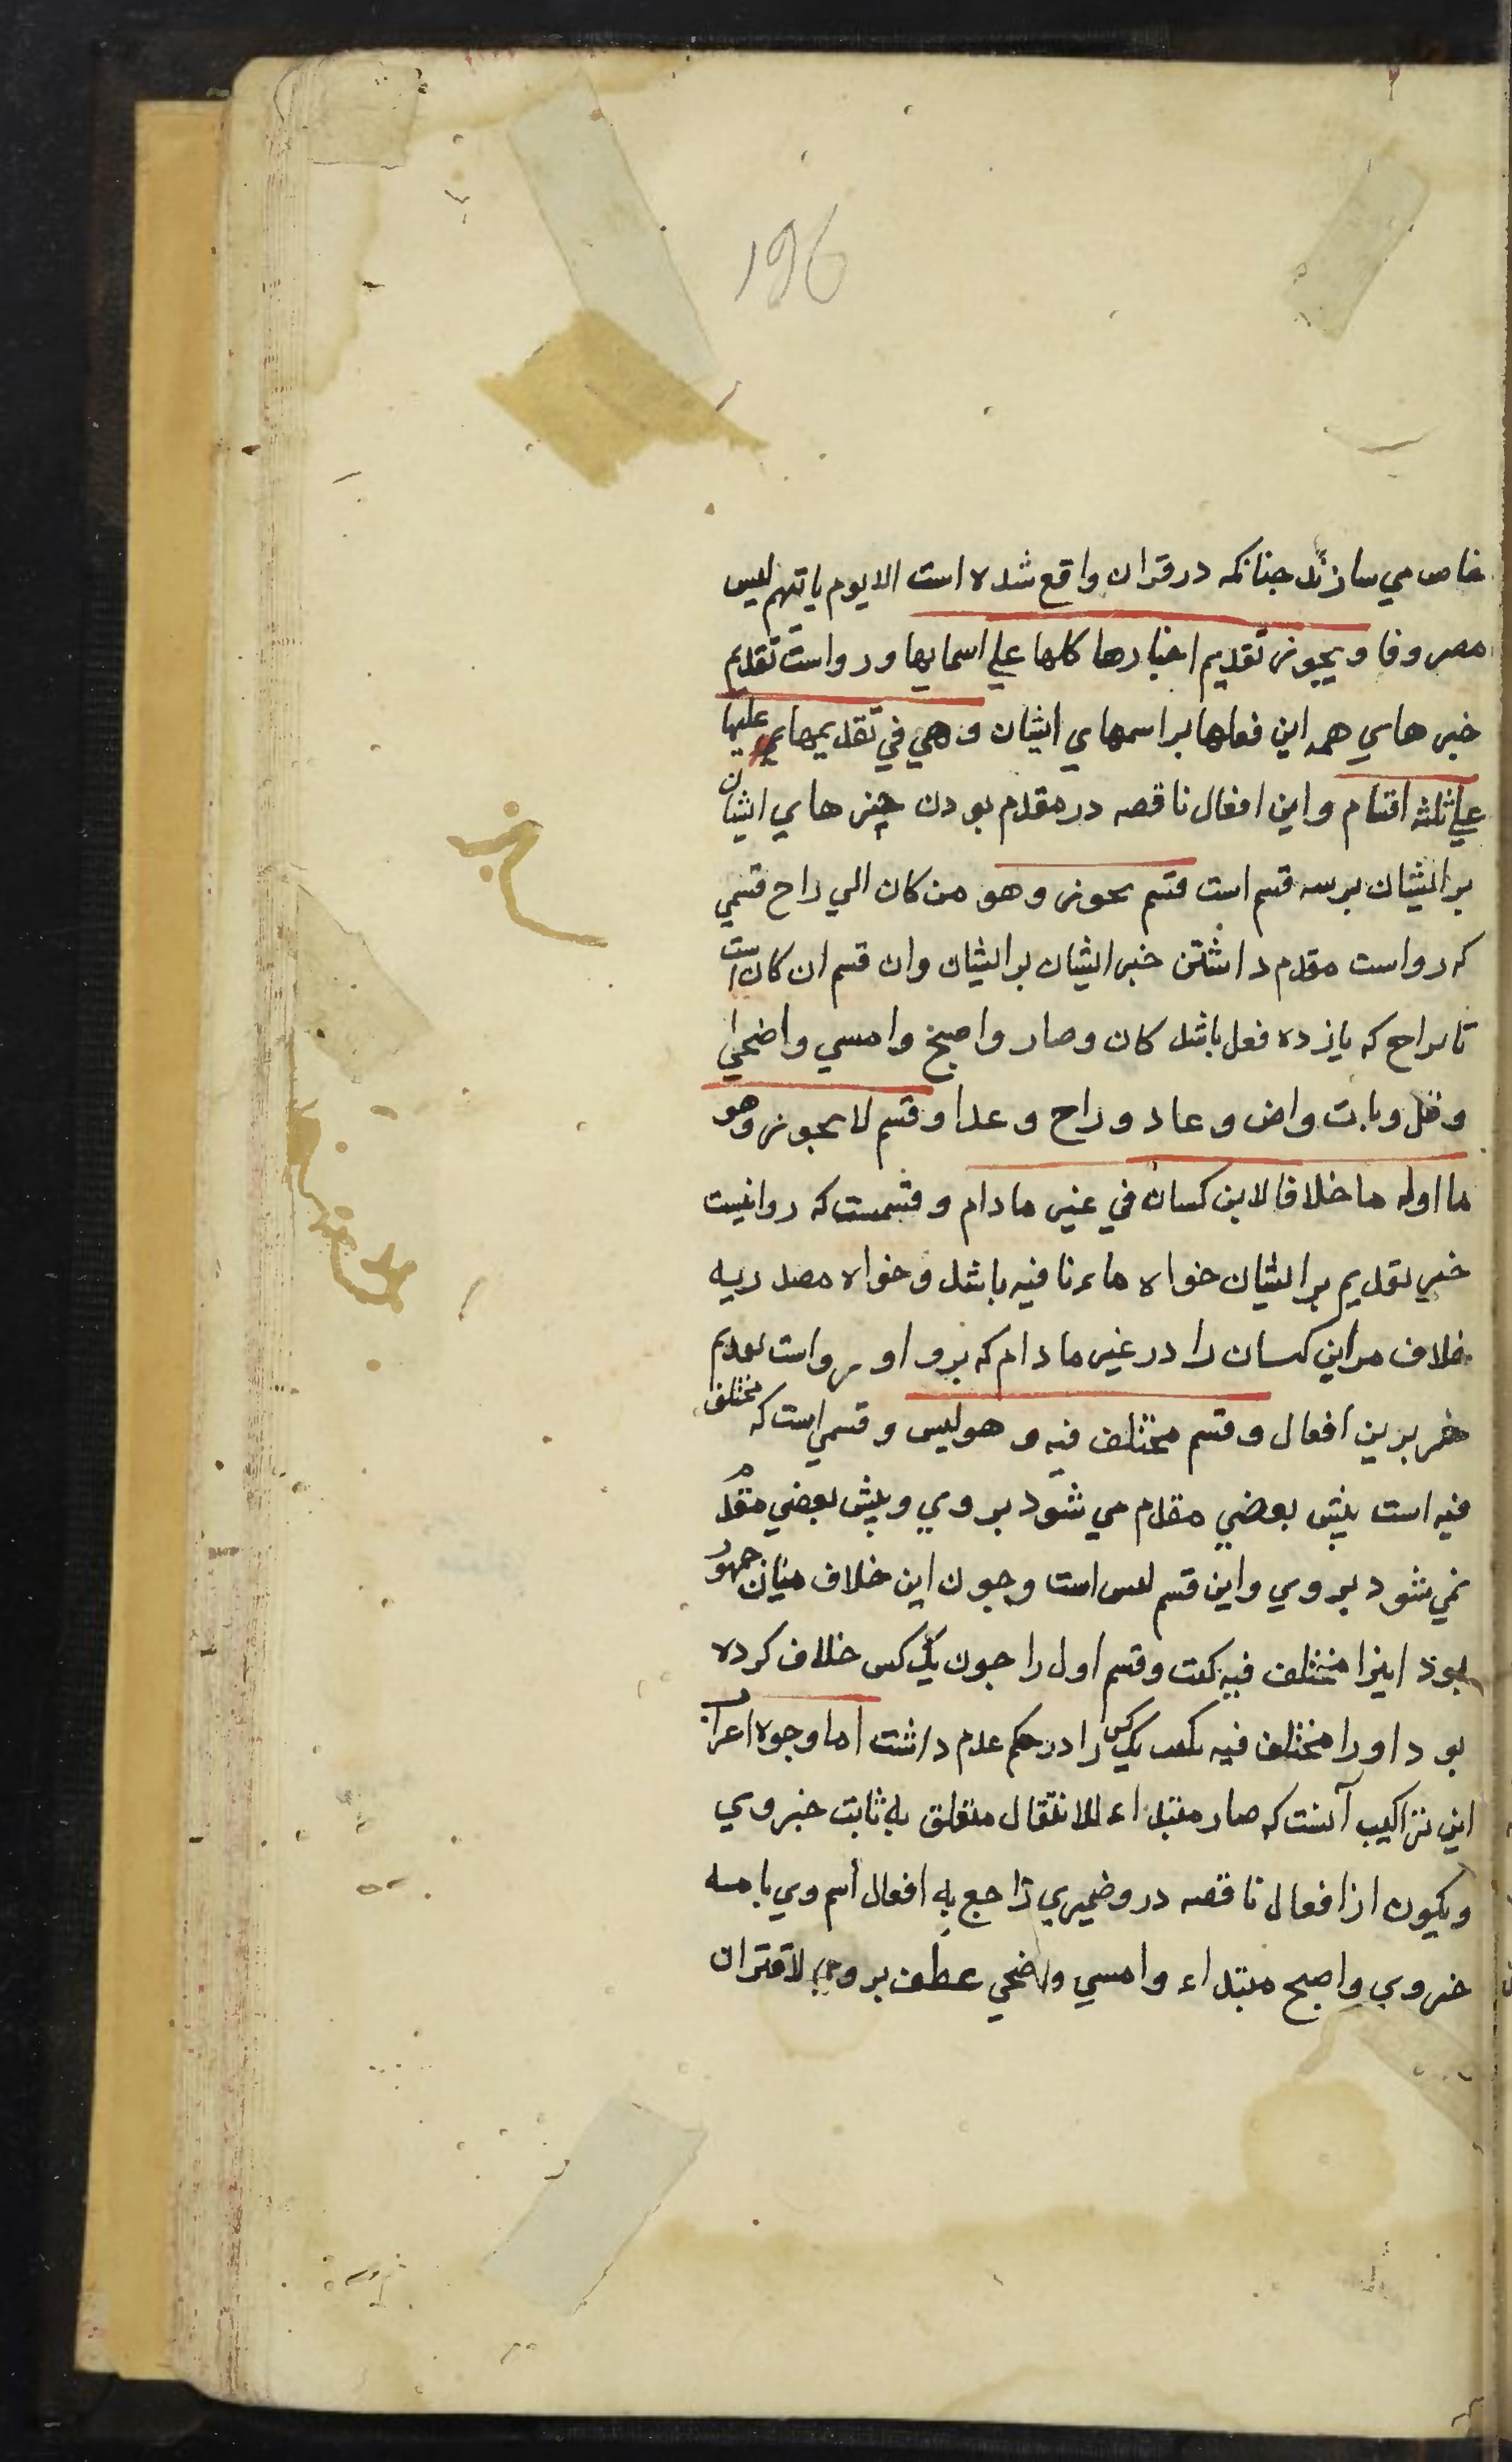 196
خاص مي سازند جنانكه در قران واقع شده است الا يوم ياتيهم ليس
مصروفا ويجوز تقديم اخبارها كلها علي اسمايها ورواست تقديم
خبر هاي همه اين فعلها بر اسمهاي ايشان وهي في تقديمها عليها
علي ثلثه اقسام واين افعال ناقصه در مقدم بودن خبر هاي ايشان
بر ايشان بر سه قسم است قسم يجوز وهو من كان الي راح قسمي
كه رواست مقدم داشتن خبر ايشان بر ايشان وان قسم ان كان است
تا براح كه يازده فعل باشد كان وصار واصبح وامسي واضحي
وظل وبات واض وعاد وراح وغدا وقسم لا يجوز وهو
ما اوله ما خلافا لابن كسان في غير مادام وقسمست كه روا نيست
خبر تقديم بر ايشان خواه ماء نافيه باشد وخواه مصدريه
خلاف مر اين كسان را در غير مادام كه برو او رواست تقديم
خبر برين افعال وقسم مختلف فيه وهو ليس وقسمي است كه مختلف
فيه است پيش بعضي مقدم مي شود بروي وپيش بعضي مقدم
نمي شود بروي واين قسم ليس است وچون اين خلاف ميان جمهور
بود اينرا مختلف فيه كفت وقسم اول را چون يك كس خلاف كرده
بود اورا مختلف فيه نكفت يك كس را در حكم عدم داشت اما وجوه اعراب
اين تراكيب آنست كه صار مبتداء للانتقال متعلق به ثابت خبر وي
ويكون از افعال ناقصه درو ضميري راجع به افعال اسم وي
خبر وي واصبح مبتداء وامسي واضحي عطف بر وي لاقتران